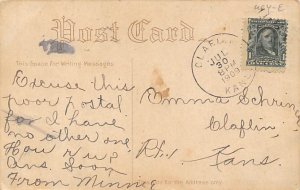 Post Card
This Space for Writing Messages
CLAFLIN
JUL
30
8PM
1909
KAN.
Excuse this
poor postal
for I have
no other one.
How r u?
Ans Soon
From Minnie
Emma Schrein
Claflin,
Kans.
for the Address only